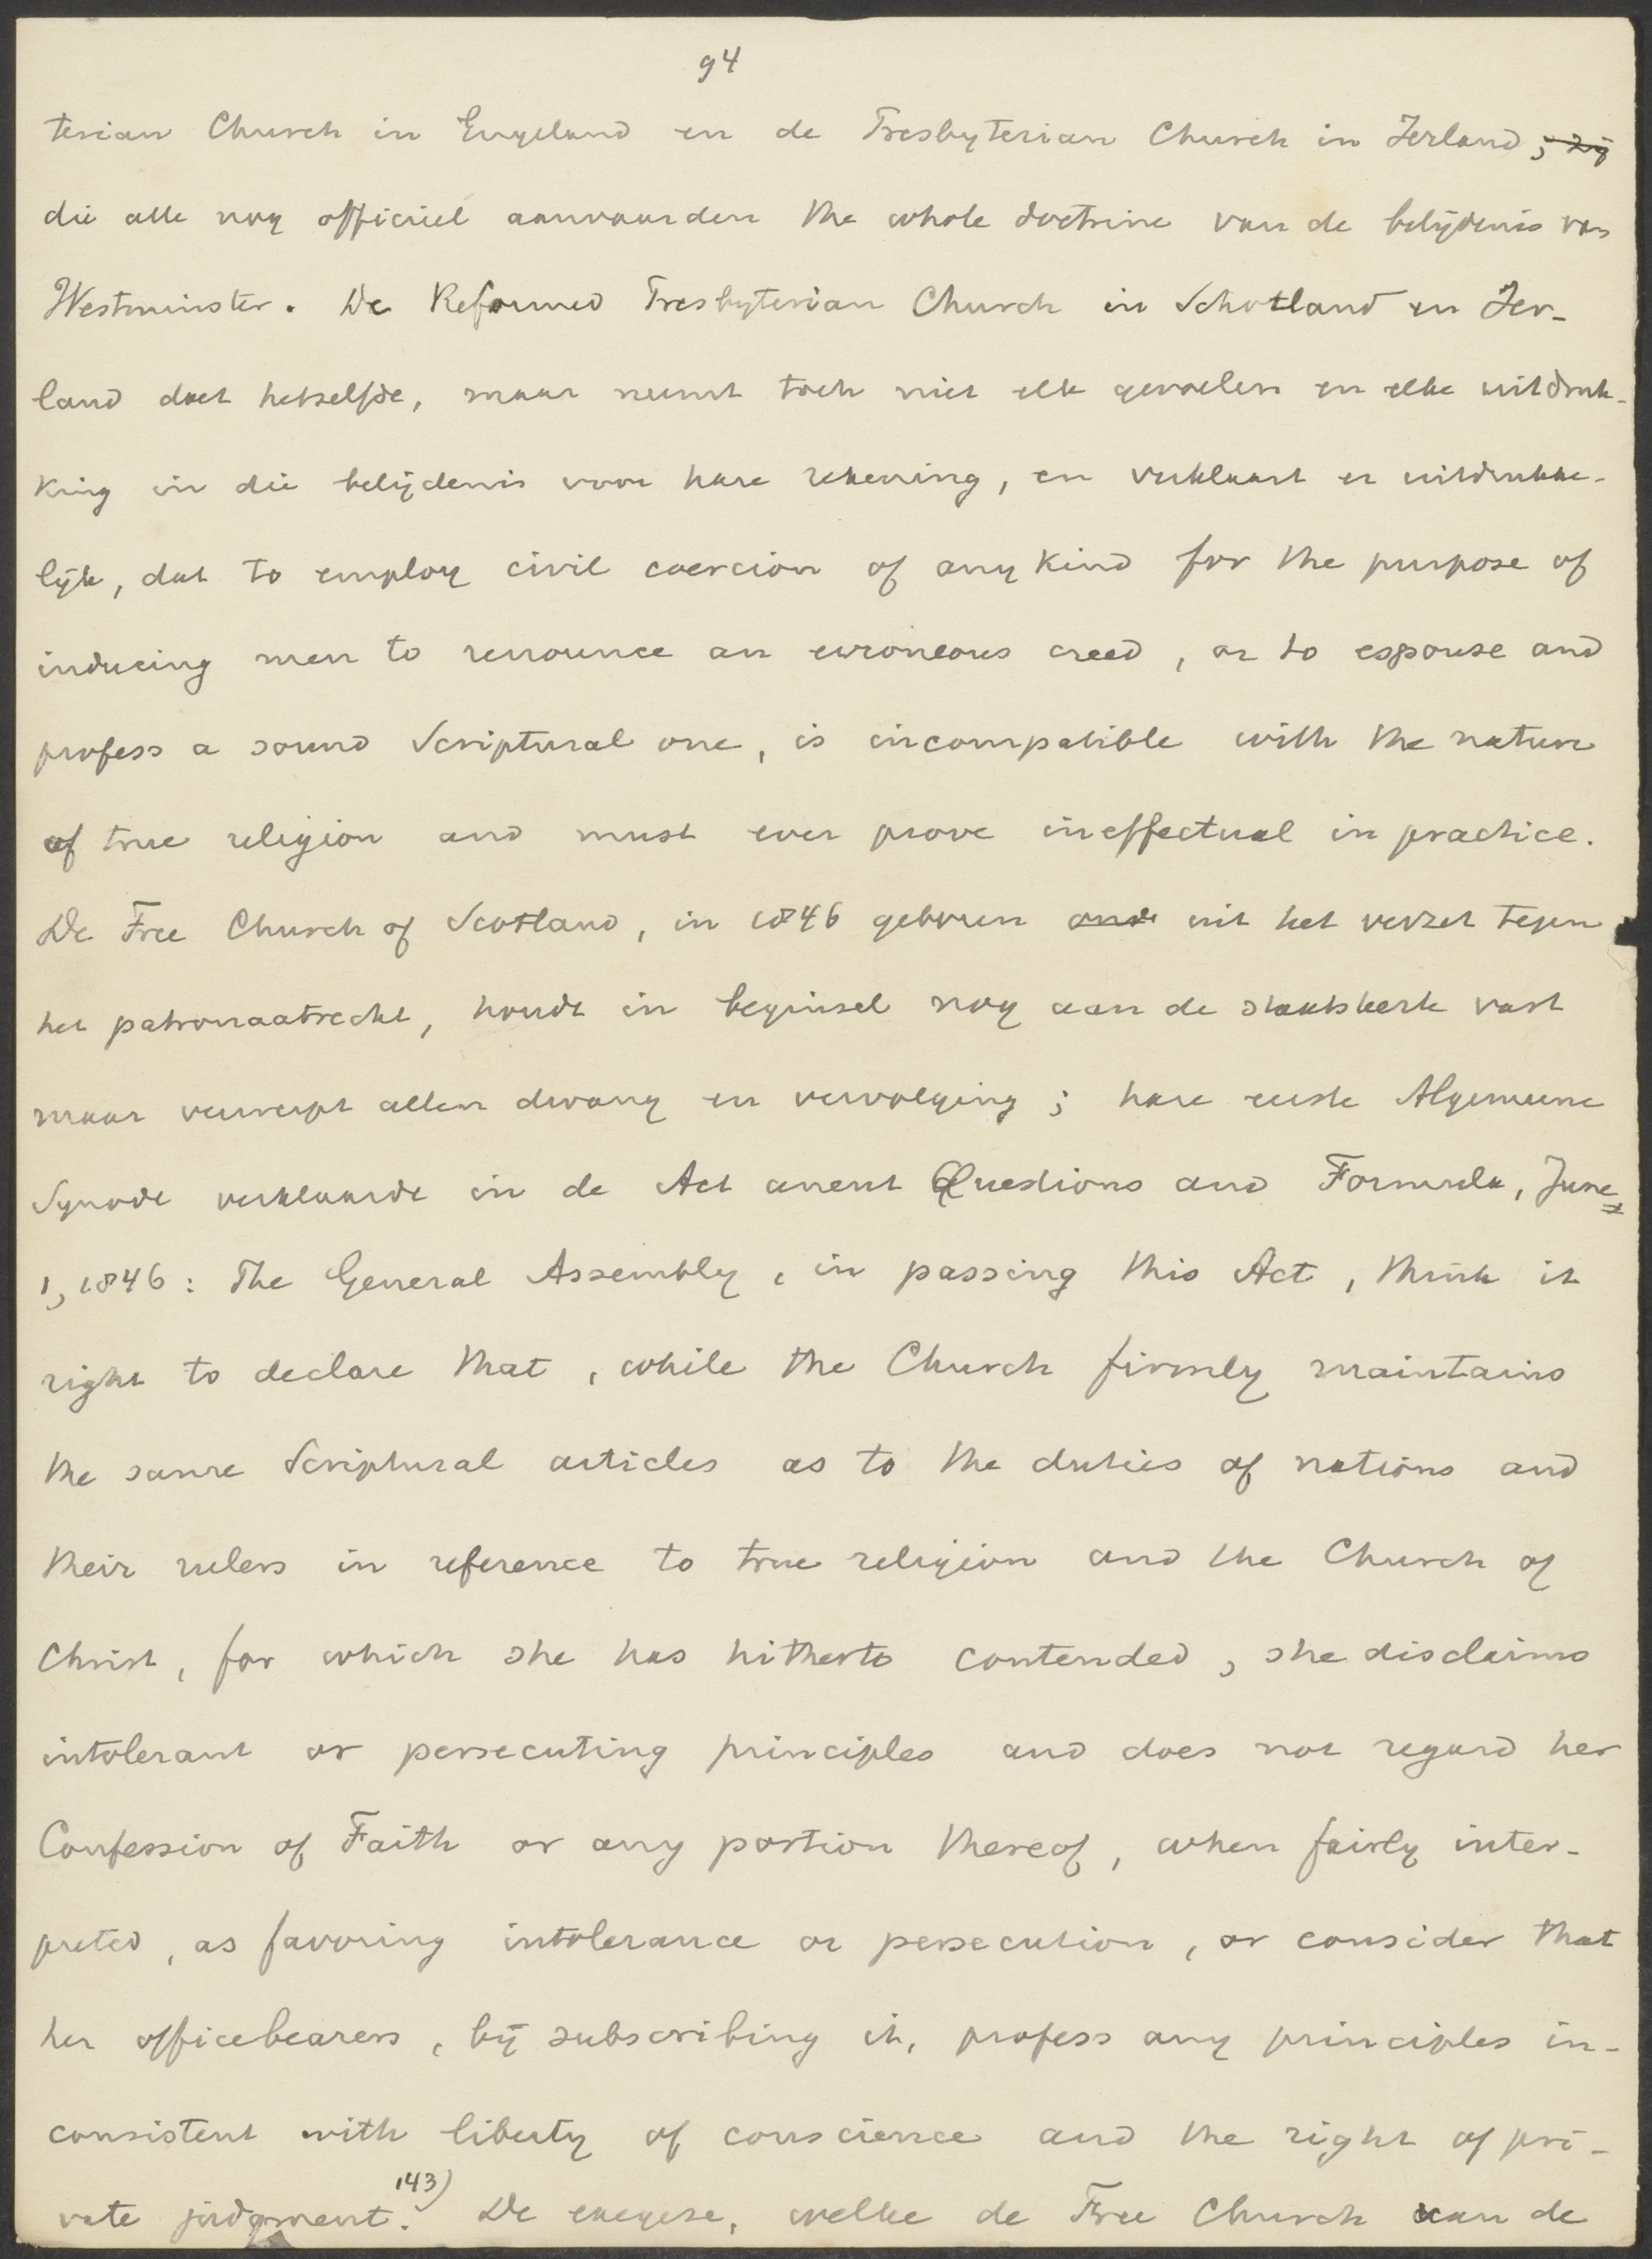 94
terian Church in Engeland en de Presbyterian Church in Ierland, zij
die alle nog officieel aanvaarden the whole doctrine van de belijdenis van
Westminster. De Reformed Presbyterian Church in Schotland en Ier-
land doet hetzelfde, maar neemt toch niet elk gevoelen en elke uitdruk-
king in die belijdenis voor hare rekening, en verklaart er uitdrukke-
lijk, dat to employ civil coercion of any kind for the purpose of
inducing men to renounce an erroneous creed, or to espouse and
profess a sound Scriptural one, is incompatible with the nature
of true religion and must ever prove ineffectual in practice.
De Free Church of Scotland, in 1846 geboren uit het verzet tegen
het patronaatrecht, houdt in beginsel nog aan de staatskerk vast
maar verwerpt allen dwang en vervolging; hare eerste Algemeene
Synode verklaarde in de Act anent Questions and Formula, June
1, 1846: The General Assembly, in passing this Act, think it
right to declare that, while the Church firmly maintains
the same Scriptural articles as to the duties of nations and
their rulers in reference to true religion and the Church of
Christ, for which she has hitherto contended, she disclaims
intolerant or persecuting principles and does not regard her
Confession of Faith or any portion thereof, when fairly inter-
preted, as favoring intolerance or persecution, or consider that
her officebearers, by subscribing it, profess any principles in-
consistent with liberty of conscience and the right of pri-
vate judgment. 143) De exegese, welke de Free Church van de